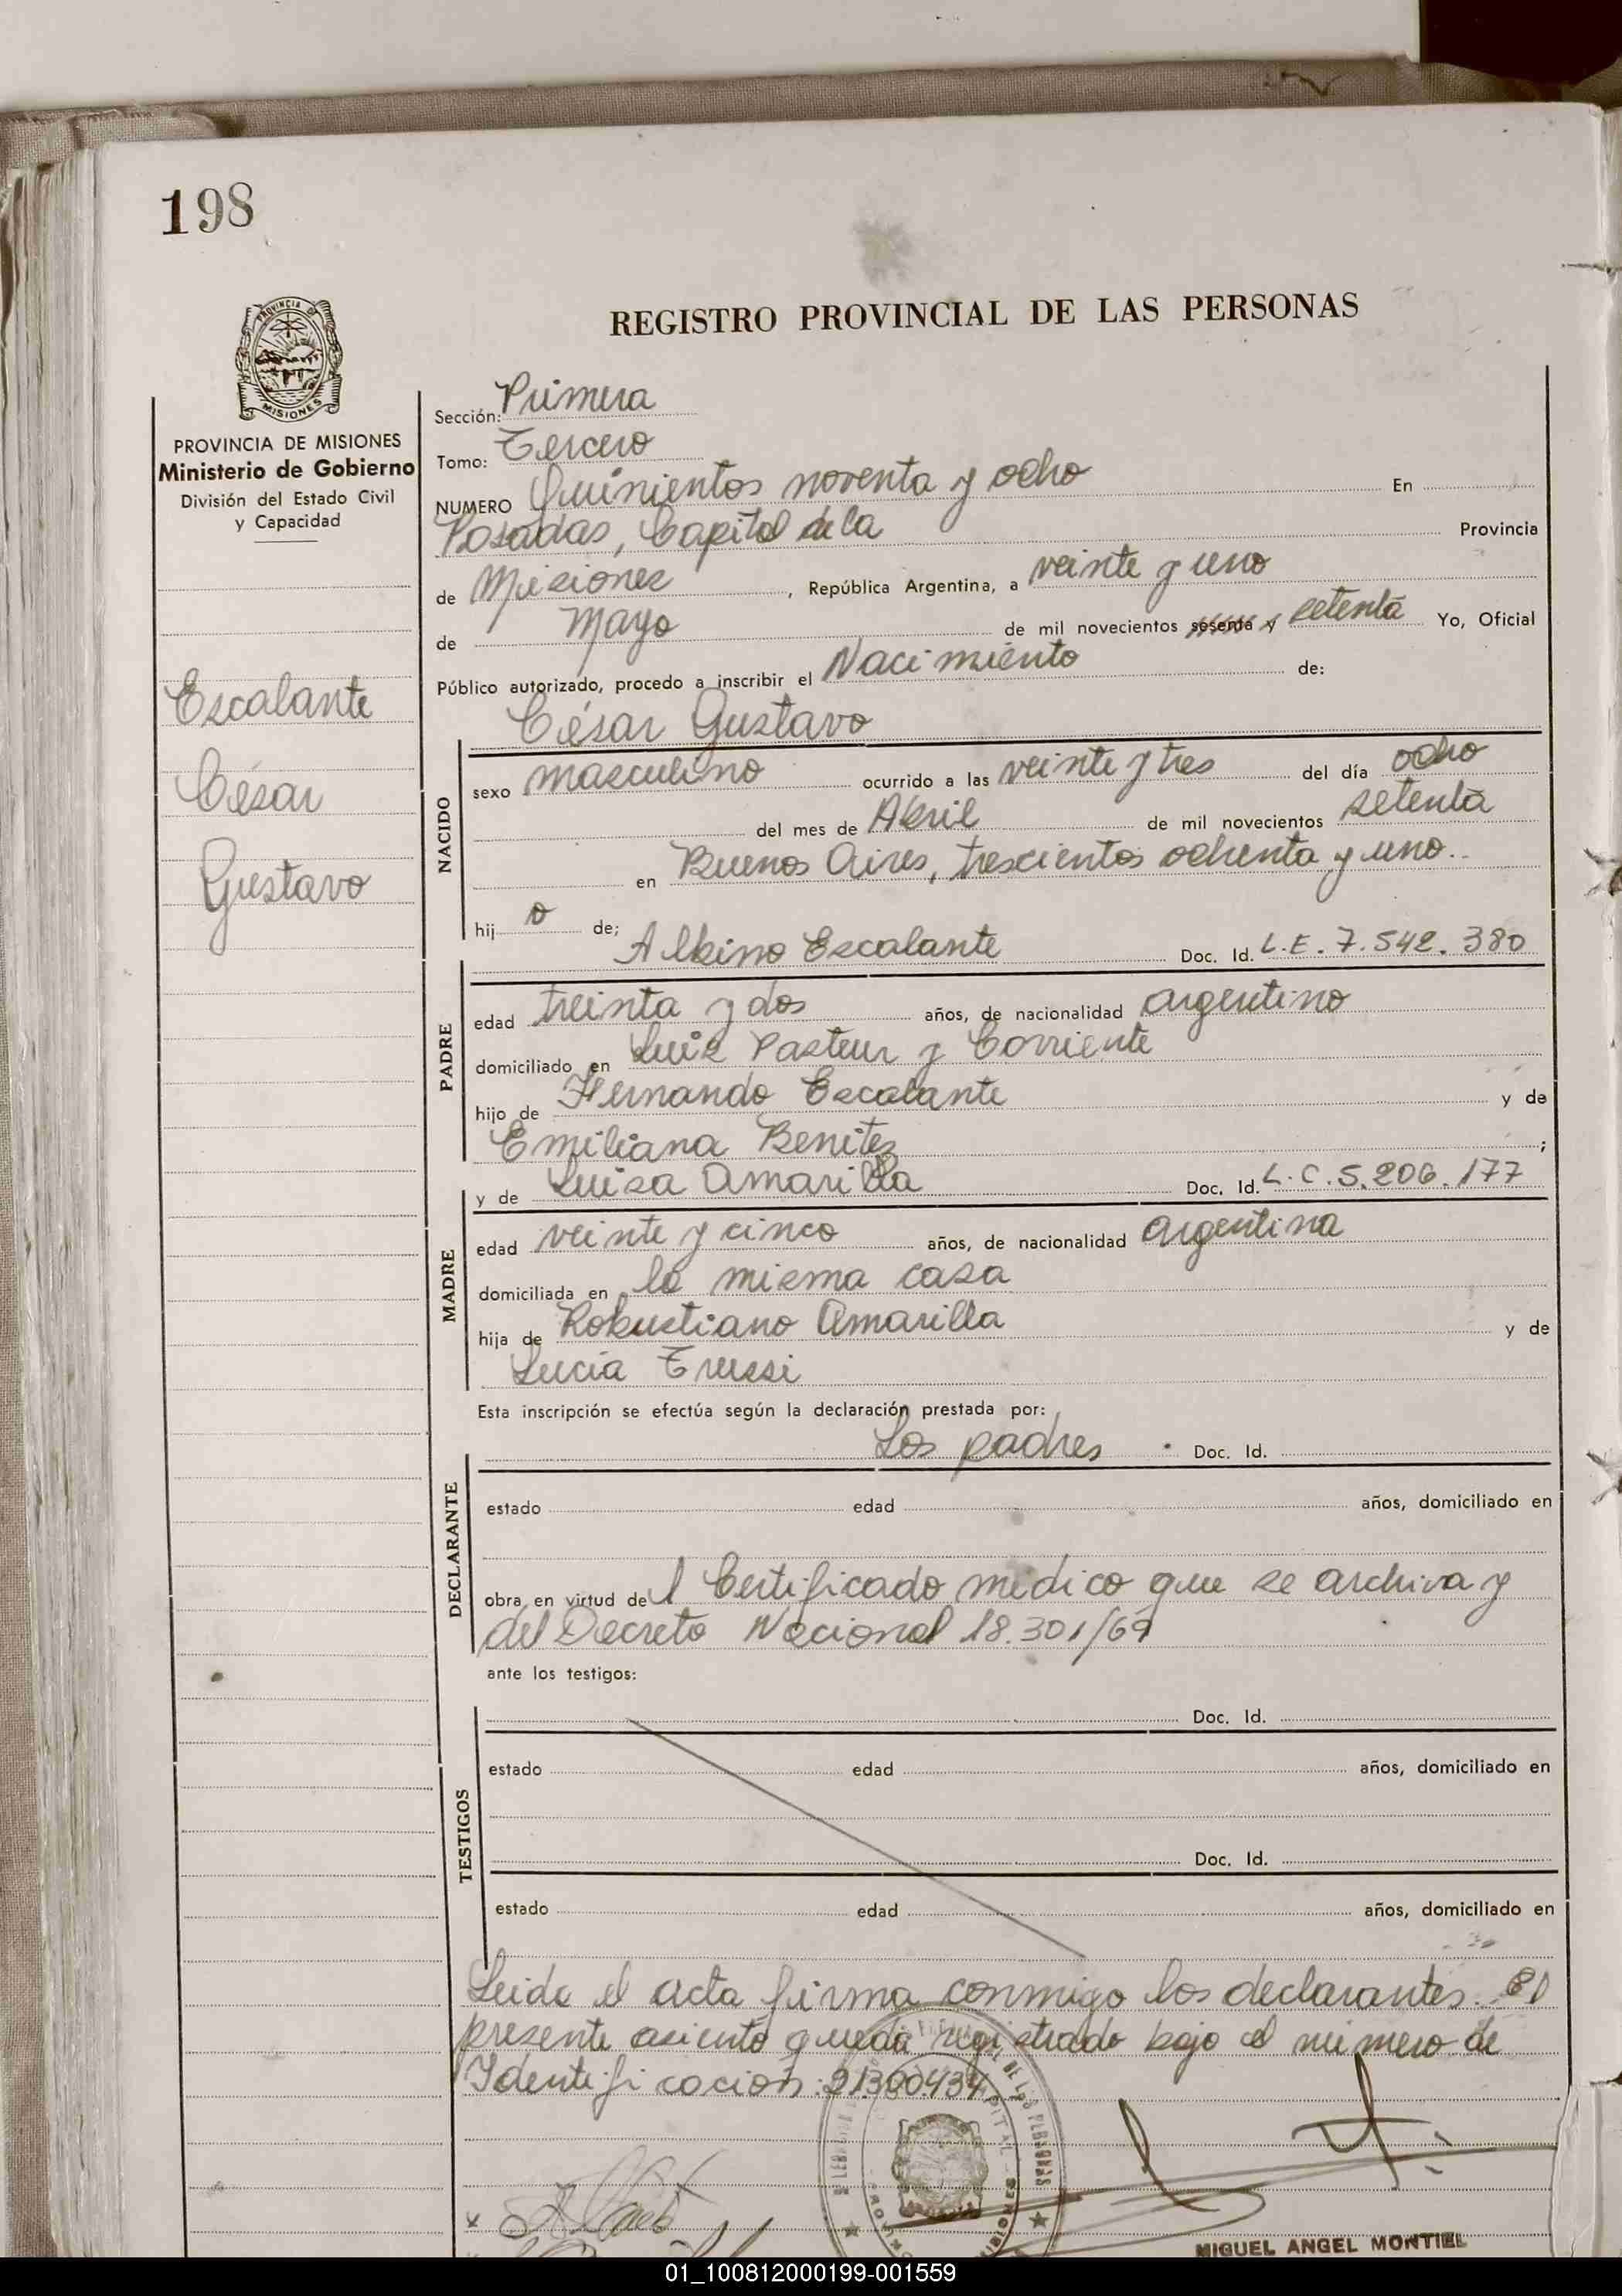 198
PROVINCIA
MISIONES
PROVINCIA DE MISIONES
Ministerio de Gobierno
División del Estado Civil
y Capacidad
Escalante
César
Gustavo
REGISTRO PROVINCIAL DE LAS PERSONAS
Sección: Primera
Tomo: Tercero
NUMERO Quinientos noventa y ocho En
Posadas, Capital de la Provincia
de Misiones, República Argentina, a veinte y uno
de Mayo de mil novecientos sesenta y setenta Yo, Oficial
Público autorizado, procedo a inscribir el Nacimiento de:
César Gustavo
NACIDO
sexo masculino ocurrido a las veinte y tres del día ocho
del mes de Abril de mil novecientos setenta
en Buenos Aires, trescientos ochenta y uno..
hijo de;
Albino Escalante Doc. Id. L.E. 7.542.380
PADRE
edad treinta y dos años, de nacionalidad argentino
domiciliado en Luis Pasteur y Corriente
hijo de Fernando Escalante y de
Emiliana Benitez ;
y de Luisa Amarilla Doc. Id. L.C. 5.206.177
MADRE
edad veinte y cinco años, de nacionalidad argentina
domiciliada en la misma casa
hija de Robustiano Amarilla y de
Lucía Trussi
Esta inscripción se efectúa según la declaración prestada por:
Los padres . Doc. Id.
DECLARANTE
estado edad años, domiciliado en
obra en virtud del Certificado médico que se archiva y
del Decreto Nacional 18.301/69
ante los testigos:
TESTIGOS
Doc. Id.
estado edad años, domiciliado en
Doc. Id.
estado edad años, domiciliado en
Leida el acta firma conmigo los declarantes. El
presente asiento queda registrado bajo el número de
Identificación: 21300434
MIGUEL ANGEL MONTIEL
01_100812000199-001559